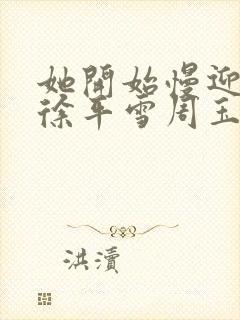 她開始慢迎
徐年雪周玉
洪瀆